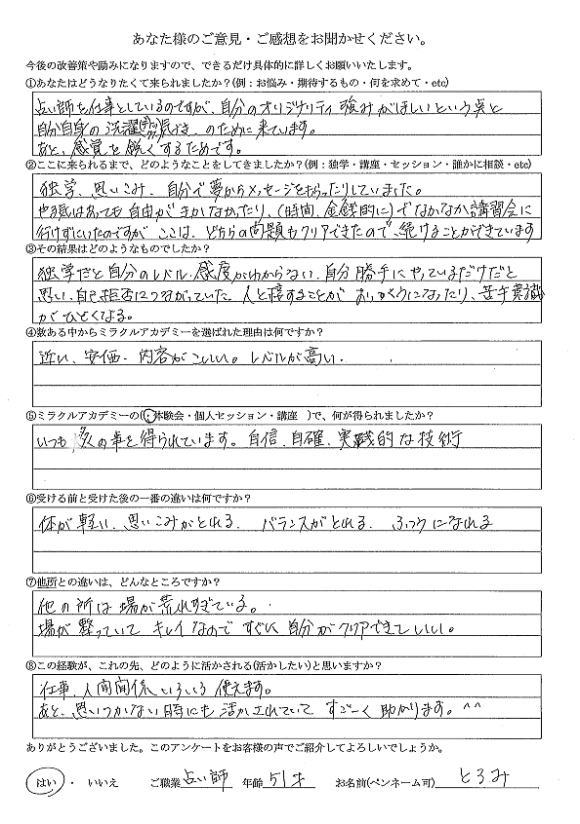 あなた様のご意見・ご感想をお聞かせください。
今後の改善策や励みになりますので、できるだけ具体的に詳しくお願いいたします。
①あなたはどうなりたくて来られましたか？(例：お悩み・期待するもの・何を求めて・etc)
占い師を仕事としているのですが、自分のオリジナリティ強みがほしいという点と
自分自身の洗濯 のために来ています。
あと、感覚を鋭くするためです。
②ここに来られるまで、どのようなことをしてきましたか？(例：独学・講座・セッション・誰かに相談・etc)
独学、思いこみ、自分で夢からメッセージをもらったりしていました。
やる気はあっても自由がきかなかったり、(時間、金銭的に)でなかなか講習会に
行けずにいたのですが、ここは、どちらの問題もクリアできたので、続けることができています
③その結果はどのようなものでしたか？
独学だと自分のレベル、感度がわからない、自分勝手にやっているだけだと
思い、自己拒否につながっていた。人と接することがおっくうになったり、苦手意識
がひどくなる。
④数ある中からミラクルアカデミーを選ばれた理由は何ですか？
近い、安価、内容がこいい。レベルが高い、
⑤ミラクルアカデミーの(体験会・個人セッション・講座 )で、何が得られましたか？
いつも多くの事を得られています。自信、自確、実践的な技術
⑥受ける前と受けた後の一番の違いは何ですか？
体が軽い、思いこみがとれる、バランスがとれる、ふつうになれる
⑦他所との違いは、どんなところですか？
他の所は場が荒れすぎている。
場が整っていてキレイなのですぐに自分がクリアできていい。
⑧この経験が、これの先、どのように活かされる(活かしたい)と思いますか？
仕事、人間関係、いろいろ使えます。
あと、思いつかない時にも活かされていてすごーく助かります。^^
ありがとうございました。このアンケートをお客様の声でご紹介してよろしいでしょうか。
はい・いいえ ご職業 占い師 年齢 51才 お名前(ペンネーム可) とろみ